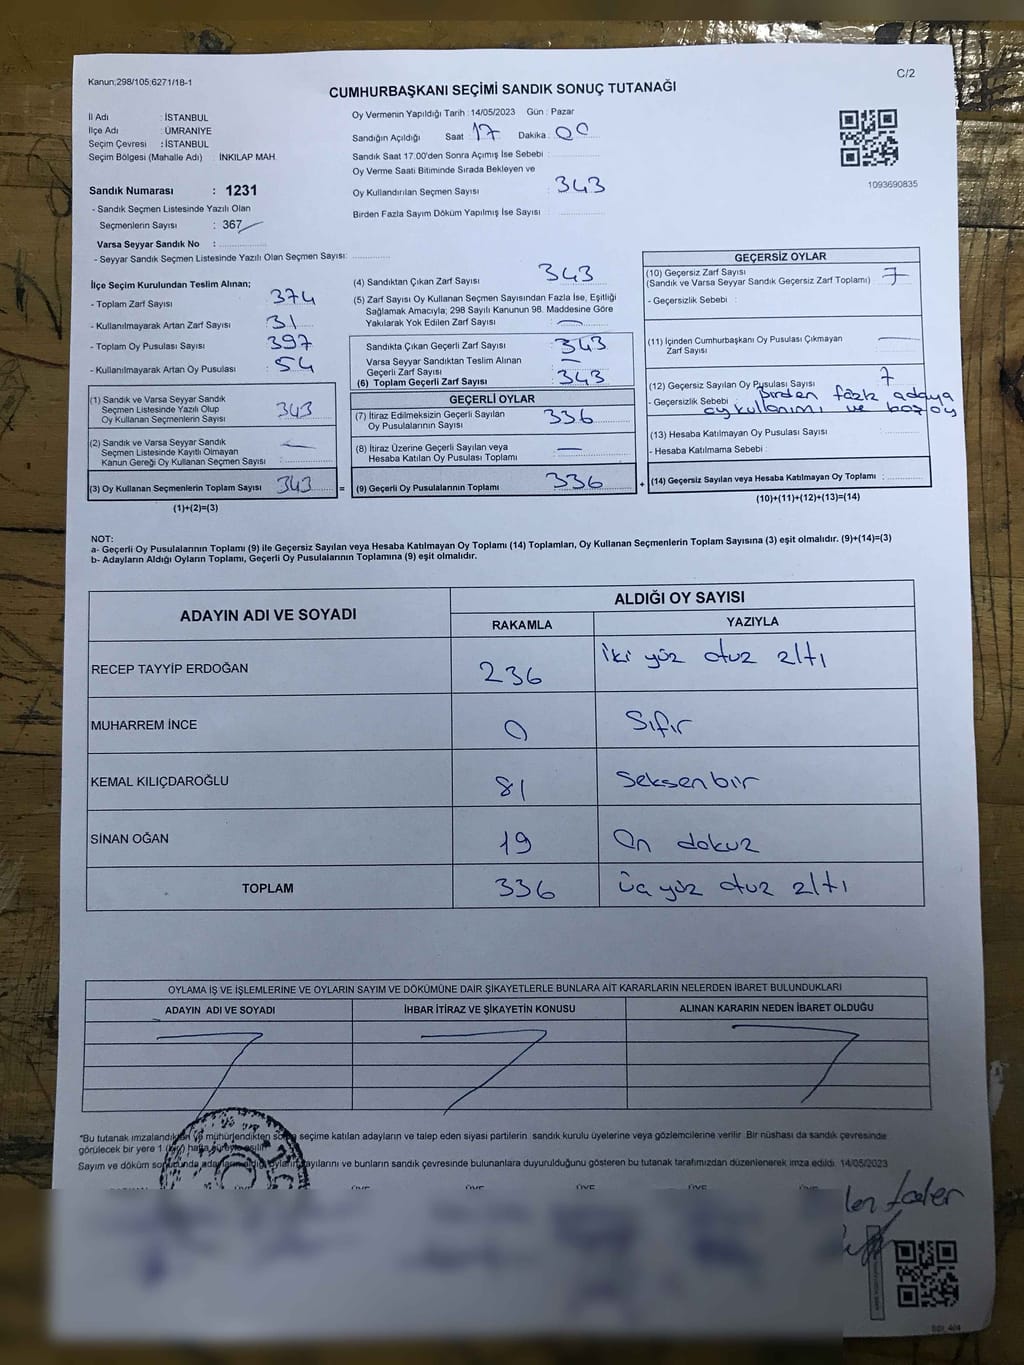 Kanun;298/105;6271/18-1
C/2
CUMHURBAŞKANI SEÇİMİ SANDIK SONUÇ TUTANAĞI
İl Adı : İSTANBUL
İlçe Adı : ÜMRANİYE
Seçim Çevresi : İSTANBUL
Seçim Bölgesi (Mahalle Adı) : İNKILAP MAH.
Sandık Numarası : 1231
- Sandık Seçmen Listesinde Yazılı Olan
Seçmenlerin Sayısı : 367
Varsa Seyyar Sandık No :
- Seyyar Sandık Seçmen Listesinde Yazılı Olan Seçmen Sayısı:
Oy Vermenin Yapıldığı Tarih : 14/05/2023 Gün : Pazar
Sandığın Açıldığı Saat 17 Dakika : 00
Sandık Saat 17:00'den Sonra Açımış İse Sebebi :
Oy Verme Saati Bitiminde Sırada Bekleyen ve
Oy Kullandırılan Seçmen Sayısı : 343
Birden Fazla Sayım Döküm Yapılmış İse Sayısı :
1093690835
İlçe Seçim Kurulundan Teslim Alınan;
- Toplam Zarf Sayısı 374
- Kullanılmayarak Artan Zarf Sayısı 31
- Toplam Oy Pusulası Sayısı 397
- Kullanılmayarak Artan Oy Pusulası 54
(1) Sandık ve Varsa Seyyar Sandık
Seçmen Listesinde Yazılı Olup
Oy Kullanan Seçmenlerin Sayısı 343
(2) Sandık ve Varsa Seyyar Sandık
Seçmen Listesinde Kayıtlı Olmayan
Kanun Gereği Oy Kullanan Seçmen Sayısı —
(3) Oy Kullanan Seçmenlerin Toplam Sayısı 343 =
(1)+(2)=(3)
(4) Sandıktan Çıkan Zarf Sayısı 343
(5) Zarf Sayısı Oy Kullanan Seçmen Sayısından Fazla İse, Eşitliği
Sağlamak Amacıyla; 298 Sayılı Kanunun 98. Maddesine Göre
Yakılarak Yok Edilen Zarf Sayısı —
Sandıkta Çıkan Geçerli Zarf Sayısı 343
Varsa Seyyar Sandıktan Teslim Alınan
Geçerli Zarf Sayısı —
(6) Toplam Geçerli Zarf Sayısı 343
GEÇERLİ OYLAR
(7) İtiraz Edilmeksizin Geçerli Sayılan
Oy Pusulalarının Sayısı 336
(8) İtiraz Üzerine Geçerli Sayılan veya
Hesaba Katılan Oy Pusulası Toplamı —
(9) Geçerli Oy Pusulalarının Toplamı 336 +
GEÇERSİZ OYLAR
(10) Geçersiz Zarf Sayısı
(Sandık ve Varsa Seyyar Sandık Geçersiz Zarf Toplamı) 7
- Geçersizlik Sebebi :
(11) İçinden Cumhurbaşkanı Oy Pusulası Çıkmayan
Zarf Sayısı —
(12) Geçersiz Sayılan Oy Pusulası Sayısı 7
- Geçersizlik Sebebi birden fazla adaya
oy kullanımı ve boş oy
(13) Hesaba Katılmayan Oy Pusulası Sayısı
- Hesaba Katılmama Sebebi :
(14) Geçersiz Sayılan veya Hesaba Katılmayan Oy Toplamı :
(10)+(11)+(12)+(13)=(14)
NOT:
a- Geçerli Oy Pusulalarının Toplamı (9) ile Geçersiz Sayılan veya Hesaba Katılmayan Oy Toplamı (14) Toplamları, Oy Kullanan Seçmenlerin Toplam Sayısına (3) eşit olmalıdır. (9)+(14)=(3)
b- Adayların Aldığı Oyların Toplamı, Geçerli Oy Pusulalarının Toplamına (9) eşit olmalıdır.
ADAYIN ADI VE SOYADI ALDIĞI OY SAYISI
RAKAMLA YAZIYLA
RECEP TAYYİP ERDOĞAN 236 iki yüz otuz altı
MUHARREM İNCE 0 Sıfır
KEMAL KILIÇDAROĞLU 81 Seksenbir
SİNAN OĞAN 19 On dokuz
TOPLAM 336 üç yüz otuz altı
OYLAMA İŞ VE İŞLEMLERİNE VE OYLARIN SAYIM VE DÖKÜMÜNE DAİR ŞİKAYETLERLE BUNLARA AİT KARARLARIN NELERDEN İBARET BULUNDUKLARI
ADAYIN ADI VE SOYADI İHBAR İTİRAZ VE ŞİKAYETİN KONUSU ALINAN KARARIN NEDEN İBARET OLDUĞU
"Bu tutanak imzalandıktan ve mühürlendikten sonra seçime katılan adayların ve talep eden siyasi partilerin sandık kurulu üyelerine veya gözlemcilerine verilir. Bir nüshası da sandık çevresinde
görülecek bir yere 1 (bir) hafta süreyle asılır."
Sayım ve döküm sonucunda adayların aldığı oyların sayılarını ve bunların sandık çevresinde bulunanlara duyurulduğunu gösteren bu tutanak tarafımızdan düzenlenerek imza edildi. 14/05/2023
ÜYE ÜYE ÜYE ÜYE ÜYE